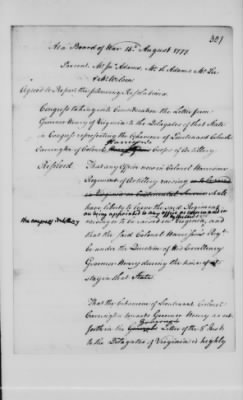 321
At a Board of War 14th August 1777
Present Mr Jno Adams, Mr S Adams Mr
& Mr Wilson
Agreed to Report the following Resolutions
Congress taking into Consideration the Letter from
Governor Henry of Virginia to the Delegates of that State
in Congress representing the behaviour of Lieutenant Colonel
Carrington of Colonel Harrison's Corps of Artillery
Resolved That any Officer now in Colonel Harrison's
Regiment of Artillery
shall
have liberty to leave the said Regiment
on being appointed to any office or command in
the company of Artillery
raising to be in Virginia, and
that the said Colonel Harrison's Regt
be under the Direction of his Excellency
Governor Henry during the time of its
stay in that State
That the behaviour of Lieutenant Colonel
Carrington towards Governor Henry as set
forth in his Governor's Letter of the
to the Delegates of Virginia is highly